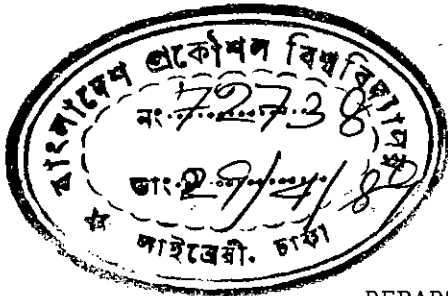 বাংলাদেশ প্রকৌশল বিশ্ববিদ্যালয়
নং 72738
তাং 29/4/89
লাইব্রেরী. ঢাকা